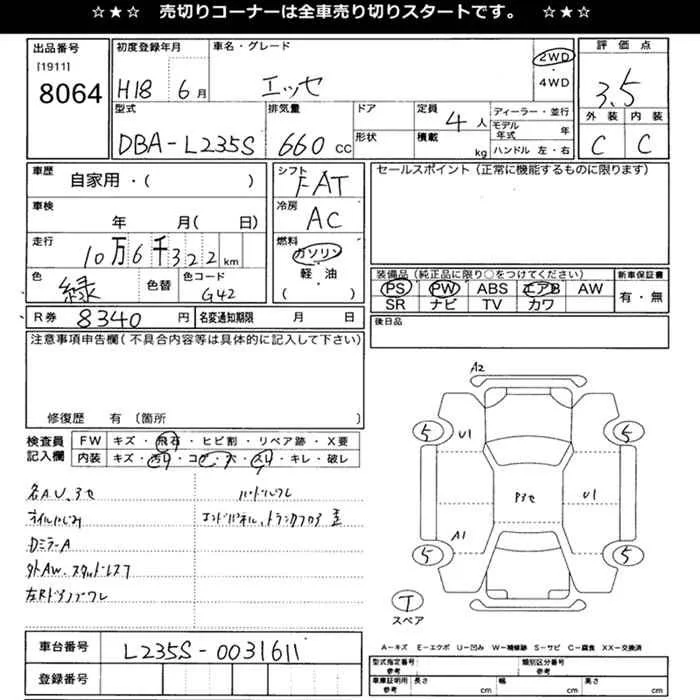 ☆★☆ 売切りコーナーは全車売り切りスタートです。 ☆★☆
出品番号 初度登録年月 車名・グレード 評価点
[1911]
8064 H18 6月 エッセ 2WD・4WD 3.5
外装 内装
C C
型式 排気量 ドア 定員 ディーラー・並行
DBA-L235S 660cc 形状 4人 積載 kg モデル年式 年
ハンドル 左・右
車歴 自家用・( ) シフト FAT セールスポイント(正常に機能するものに限ります)
車検 年 月( 日) 冷房 AC
走行 10万6千322km 燃料 ガソリン 軽・油 ( )
色 緑 色替 色コード G42
装備品(純正品に限り○をつけてください) 新車保証書
PS PW ABS エアB AW 有・無
SR ナビ TV カワ
R券 8340円 名変通知期限 月 日 後日品
注意事項申告欄(不具合内容等は具体的に記入して下さい)
修復歴 有(箇所 )
検査員記入欄 FW キズ・飛石・ヒビ割・リペア跡・X要
内装 キズ・汚レ・コゲ・穴・スレ・キレ・破レ
各AU、3セ ハンドルスレ
オイルにじみ エンドパネル、トランクフロア
ドミラーA
外AW、スタッドレス7
A2
5 U1 5
P3セ U1
A1
5 5
T
スペア
車台番号 L235S-0031611
登録番号
A-キズ E-エクボ U-凹み W-補修跡 S-サビ C-腐食 XX-交換済
型式指定番号 参考 類別区分番号 参考
車庫証明用 参考 長さ cm 幅 cm 高さ cm